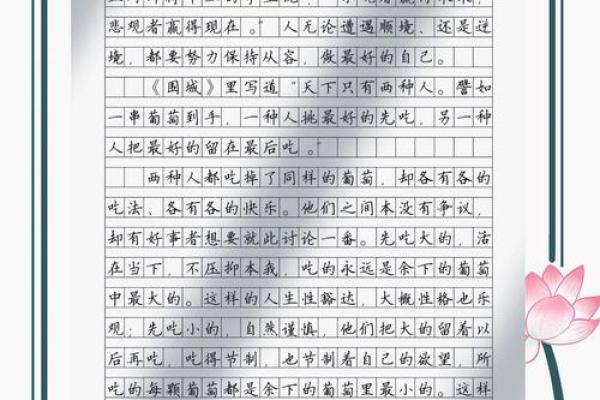 悲观者赢得现在。”人无论遭遇顺境、还是逆
境，都要努力保持从容，做最好的自己。
《围城》里写道“天下只有两种人。譬如
一串葡萄到手，一种人挑最好的先吃，另一种
人把最好的留在最后吃。”
两种人都吃掉了同样的葡萄，却各有各的
吃法、各有各的快乐。他们之间本没有争议，
却有好事者想要就此讨论一番。先吃大的，活
在当下，不压抑本我，吃的永远是余下的葡萄
中最大的。这样的人生性豁达，大概性格也乐
观；先吃小的，自然谨慎，他们把大的留着以
后再吃，吃得节制，也节制着自己的欲望，所
吃的每颗葡萄都是余下的葡萄里最小的。这样